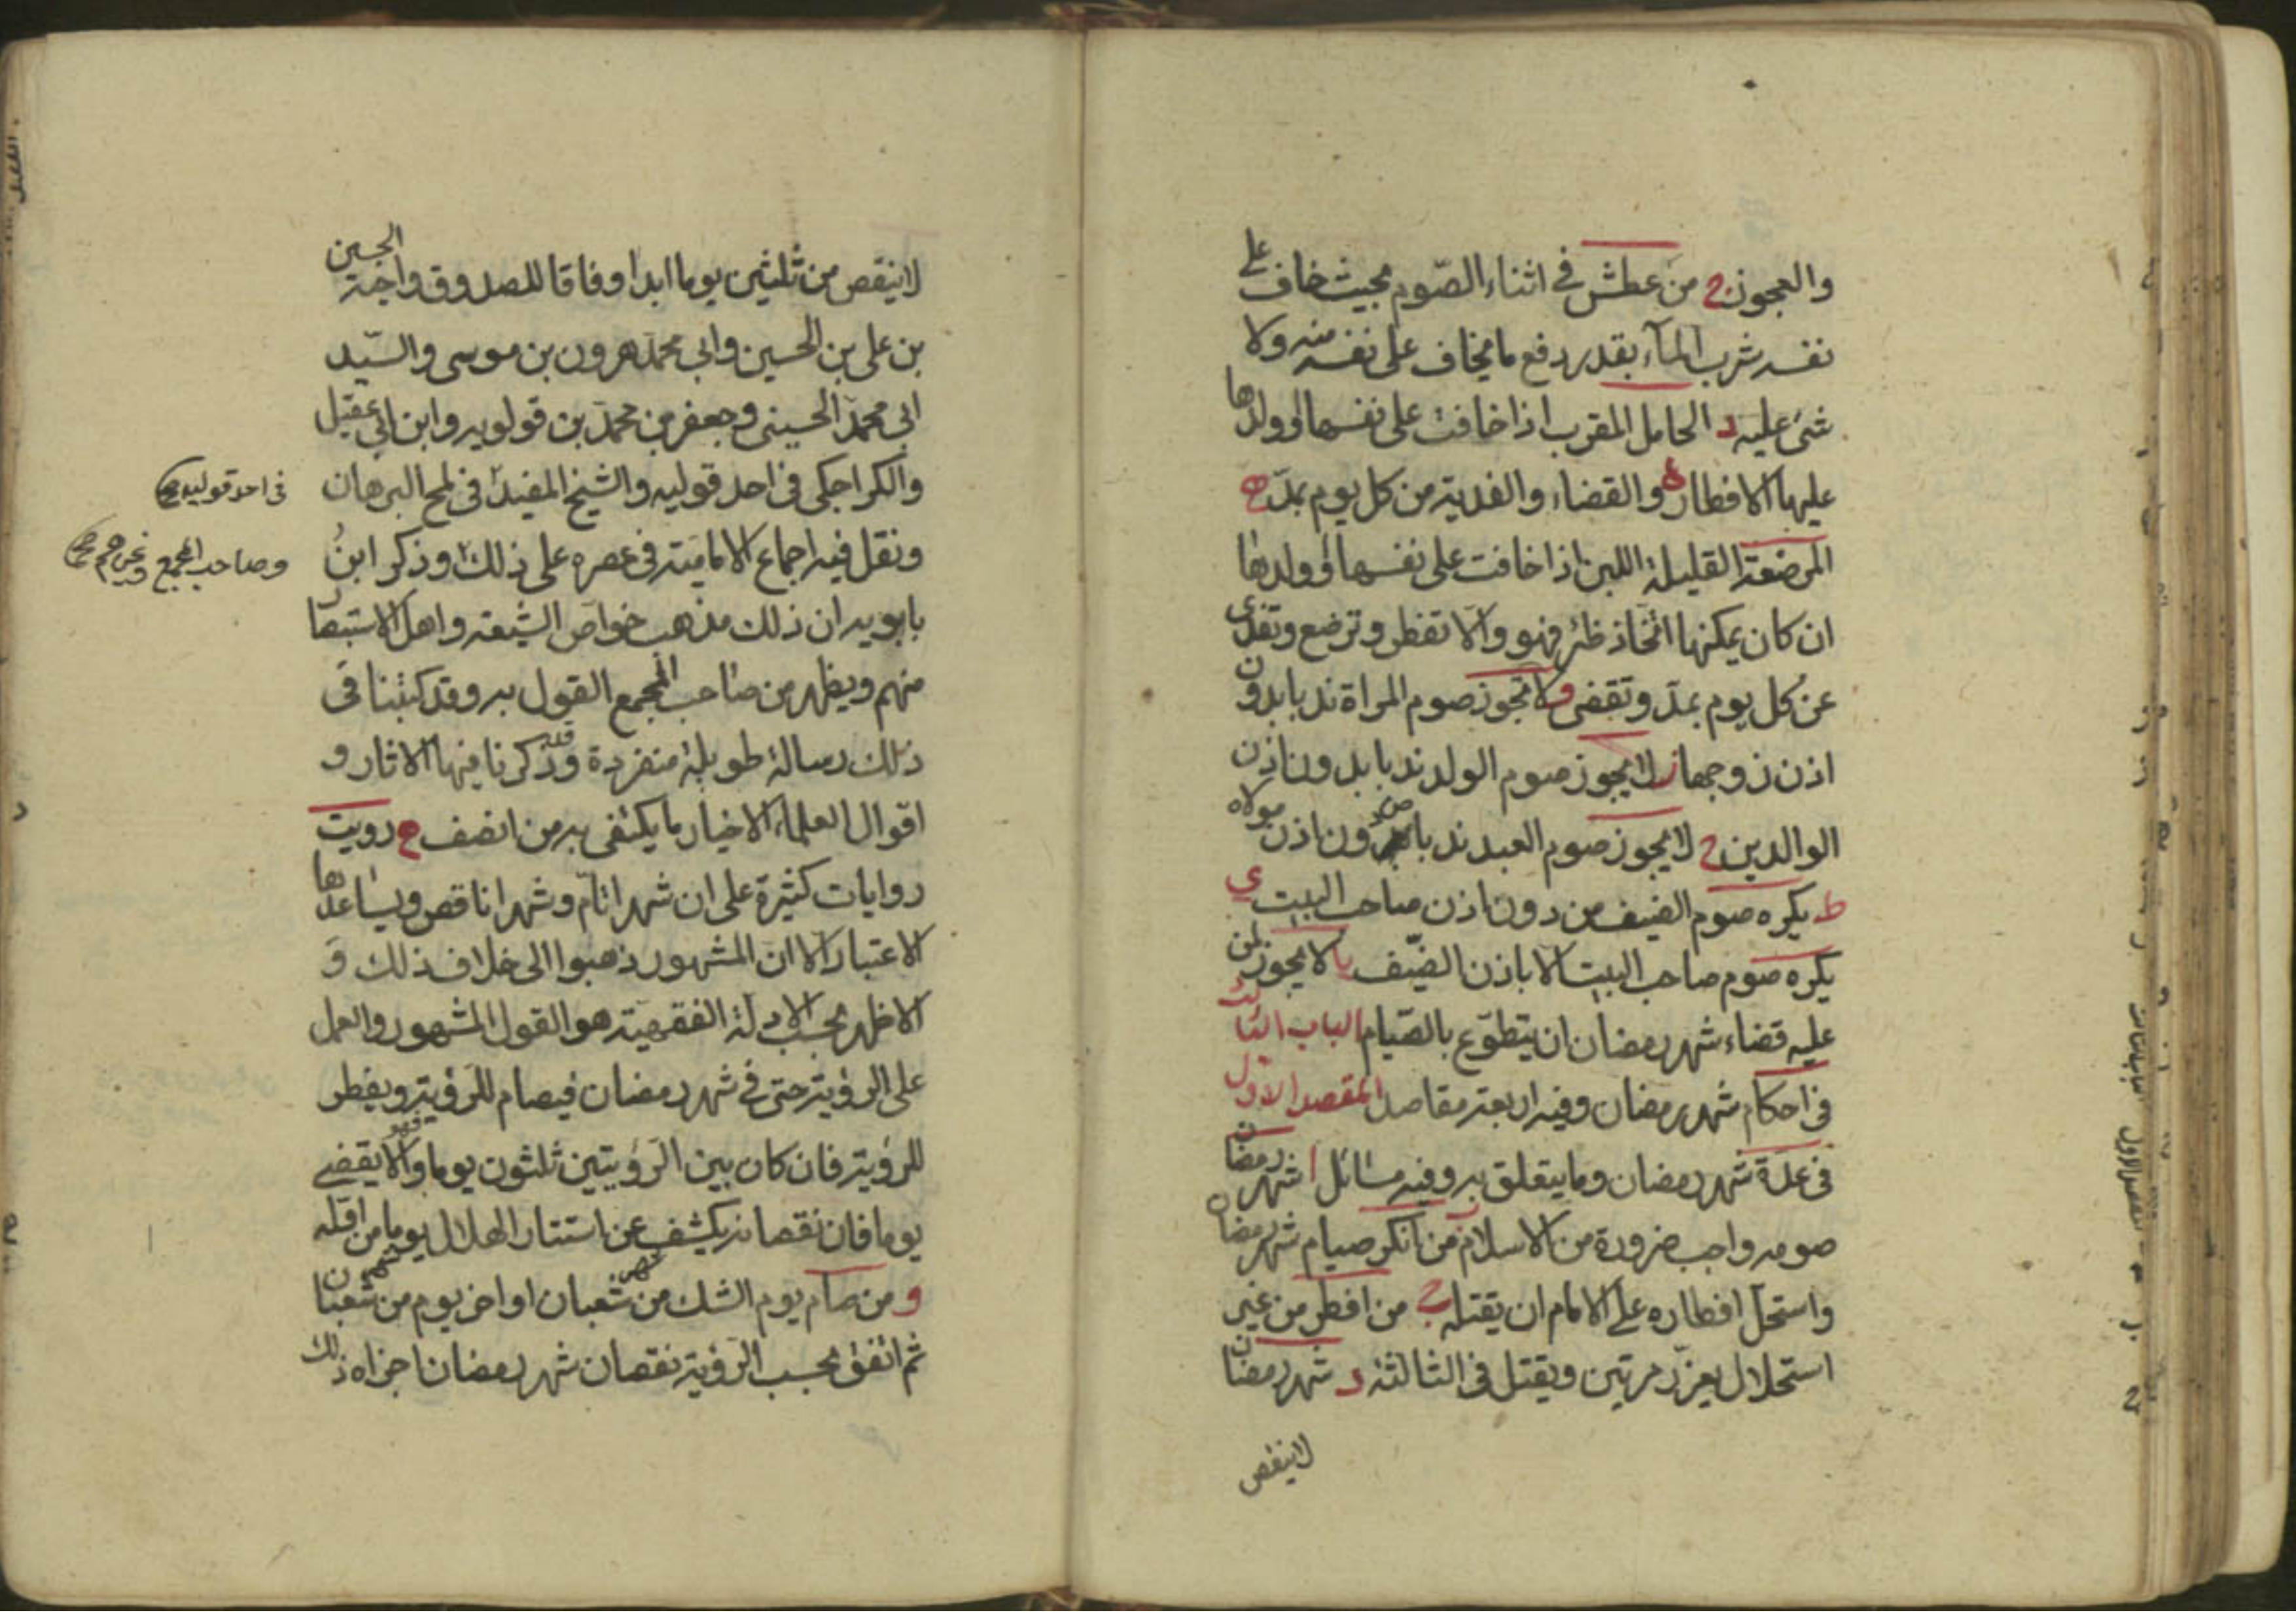 والعجوز ج من عطش في اثناء الصّوم بحيث خاف على
نفسه شرب المآء بقدر دفع ما يخاف على نفسه منه ولا
شئ عليه د الحامل المقرب اذا خافت على نفسها او ولدها
عليها الافطار والقضاء والفدية من كل يوم بمدّ ه
المرضعة القليلة اللبن اذا خافت على نفسها او ولدها
ان كان يمكنها اتخاذ ظئر فهو والّا تفطر وترضع وتفدى
عن كل يوم بمدّ وتقضى و لا يجوز صوم المراة ندبا بدون
اذن زوجها ز لا يجوز صوم الولد ندبا بدون اذن
الوالدين ح لا يجوز صوم العبد ندبا من دون اذن مولاه
ط يكره صوم الضيف من دون اذن صاحب البيت ي
يكره صوم صاحب البيت الا باذن الضّيف يا لا يجوز لمن
عليه قضاء شهر رمضان ان يتطوّع بالصّيام الباب الثالث
في احكام شهر رمضان وفيه اربعة مقاصد المقصد الاول
في عدّة شهر رمضان وما يتعلق به وفيه مسائل ا شهر رمضان
صومه واجب ضرورة من الاسلام فمن انكر صيام شهر رمضان
واستحلّ افطاره على الامام ان يقتله ج من افطر من غير
استحلال يعزّر مرتين ويقتل في الثالثة د شهر رمضان
لا ينقص
لا ينقص من ثلثين يوما ابدا وفاقا للصدوق واخيه الحسين
بن على بن الحسين وابى محمّد هرون بن موسى والسّيد
ابى محمّد الحسينى وجعفر بن محمّد بن قولويه وابن ابى عقيل
والكراجكى فى احد قوليه والشيخ المفيد فى لمح البرهان
فى احد قوليه
ونقل فيه اجماع الاماميّة فى عصره على ذلك وذكر ابن
وصاحب المجمع
بابويه ان ذلك مذهب خواصّ الشيعة واهل الاستبصار
منهم ويظهر من صاحب المجمع القول به وقد كتبنا فى
ذلك رسالة طويلة منفردة وقد ذكرنا فيها الاثار و
اقوال العلماء الاخيار ما يكتفى به من انصف ه رويت
روايات كثيرة على ان شهرا تامّ وشهرا ناقص ويساعدها
الاعتبار الا انّ المشهور ذهبوا الى خلاف ذلك و
الاظهر بحسب الادلة الفقهيّة هو القول المشهور والعمل
على الرؤية حتى في شهر رمضان فيصام للرؤية ويفطر
للرؤية فان كان بين الرؤيتين ثلثون يوما فهو والا يقضى
يوما فان نقصانه يكشف عن استتار الهلال يوما من اوّله
و من صام يوم الشك من شهر شعبان او اخر يوم من شهر شعبان
ثم اتفق بحسب الرؤية نقصان شهر رمضان اجزاه ذلك